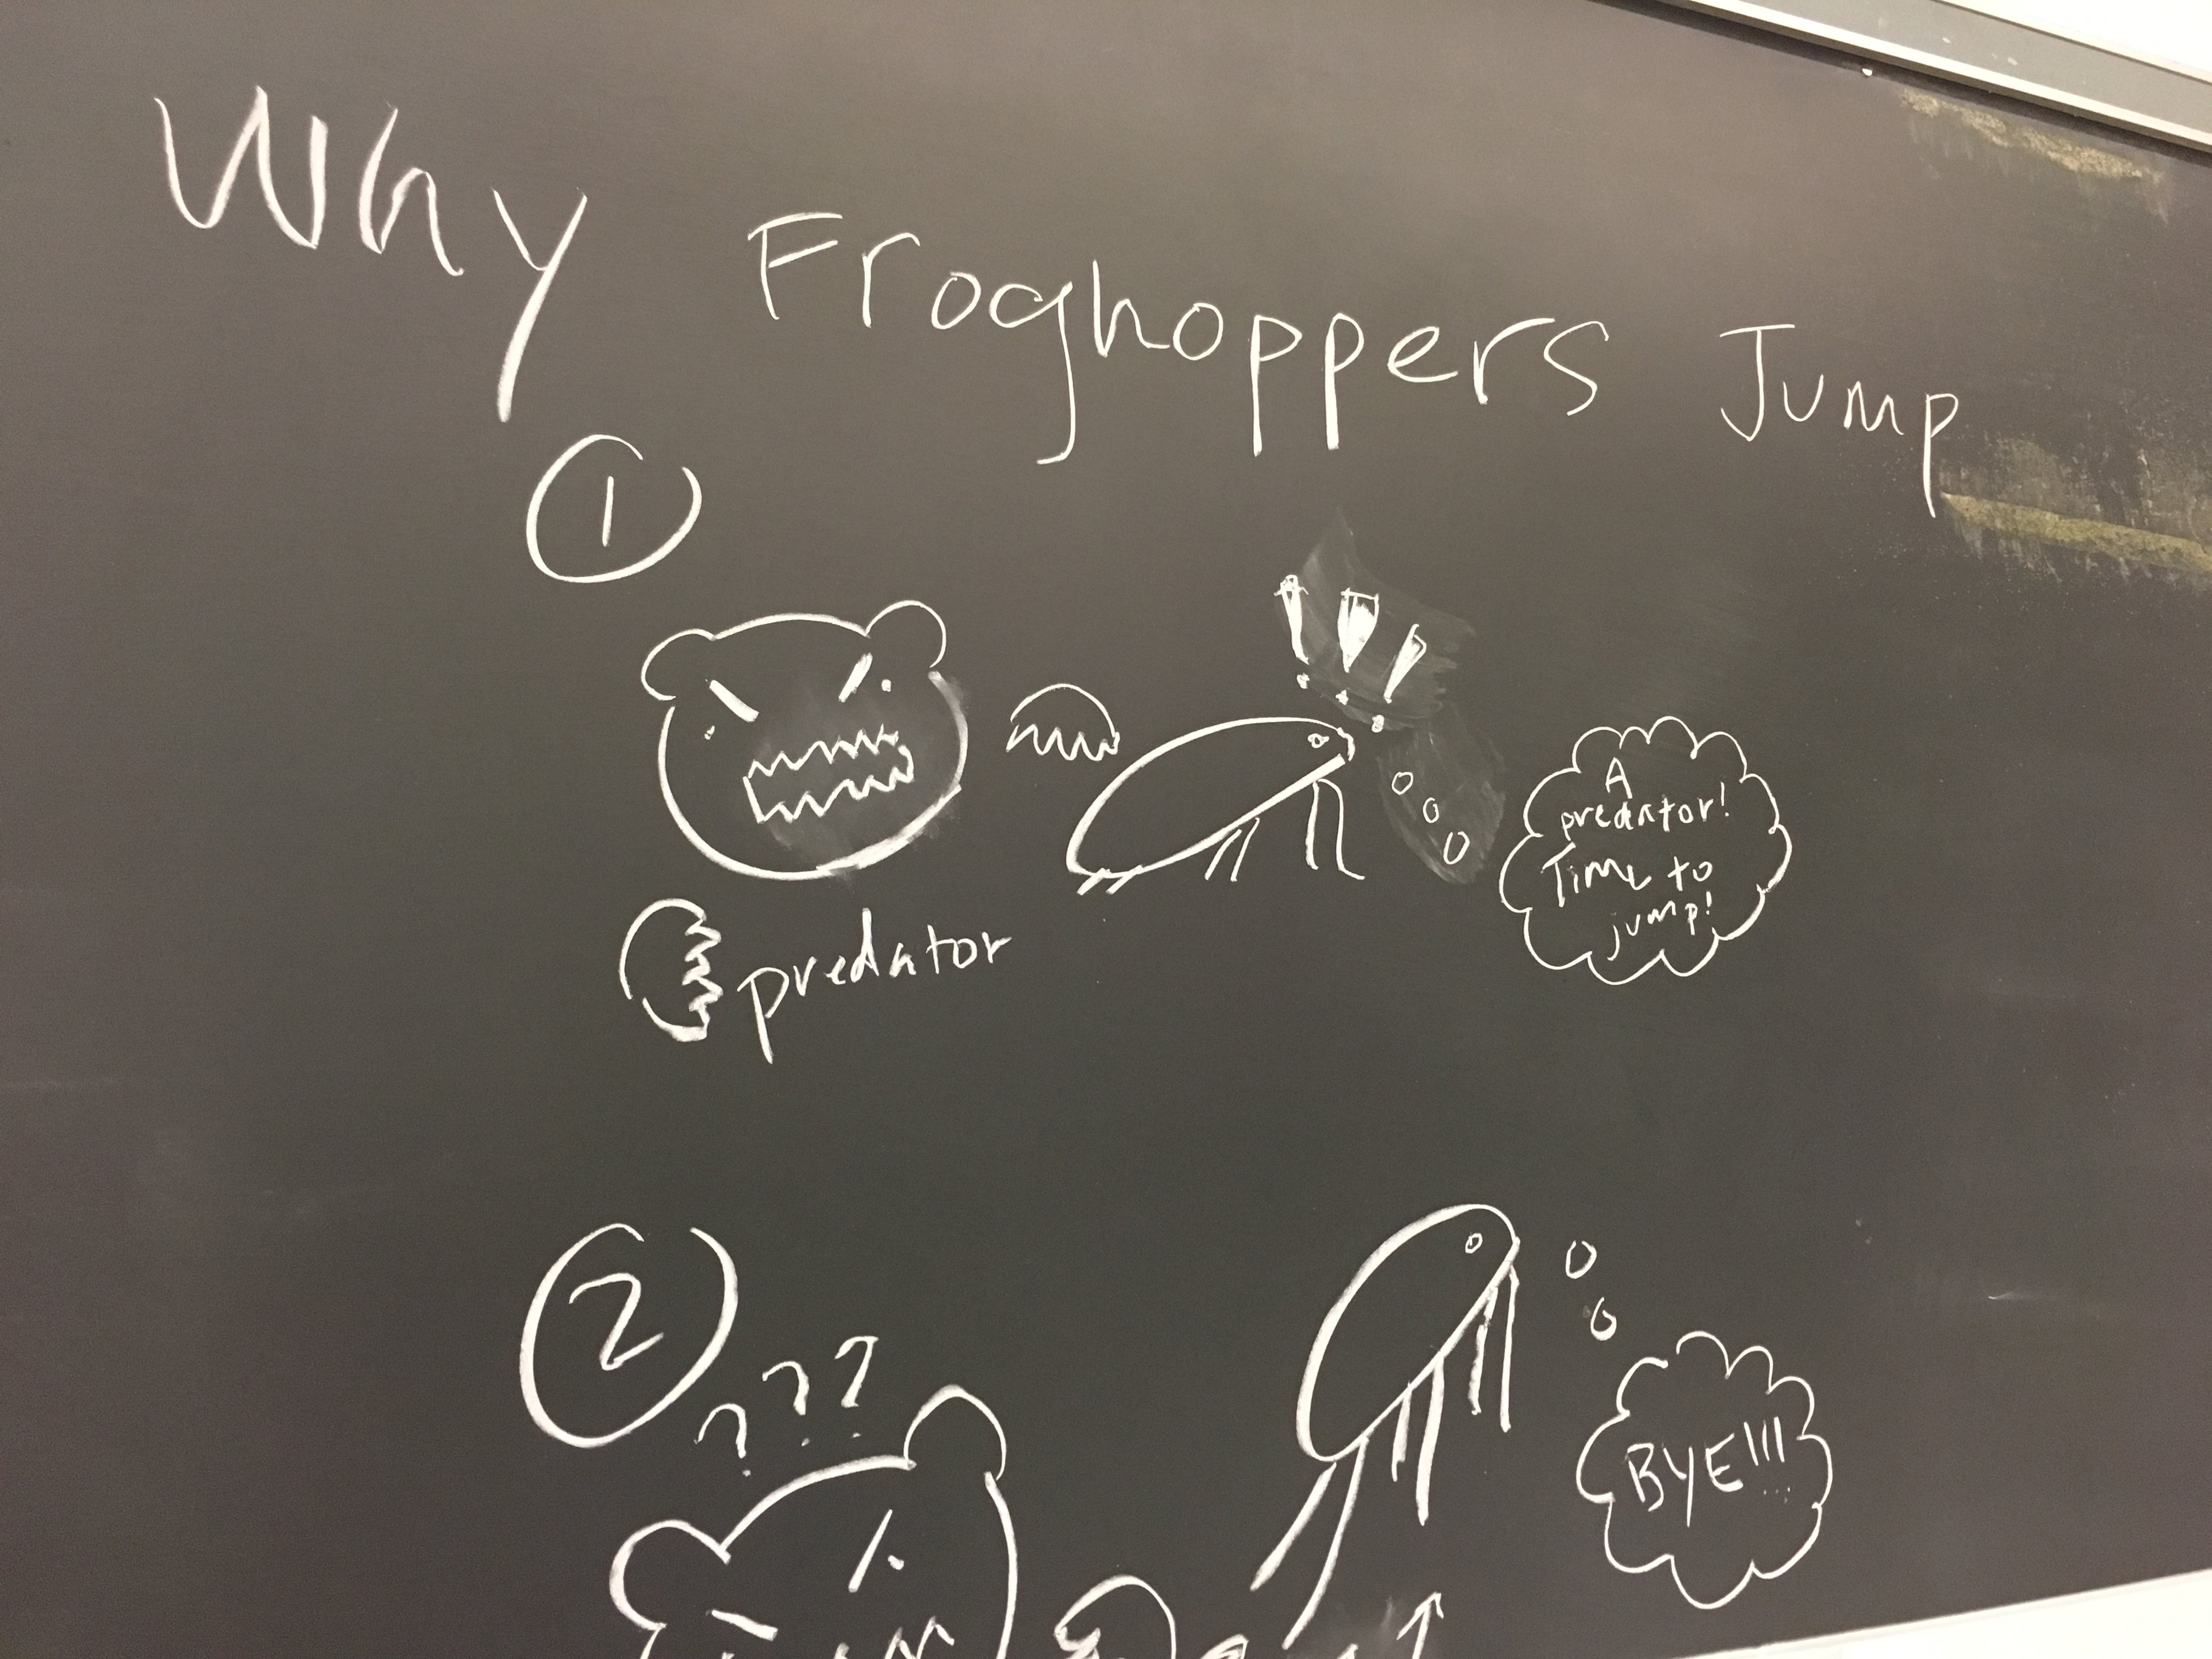 Why Froghoppers Jump
1
A
predator!
Time to
jump!
predator
2
???
BYE!!!